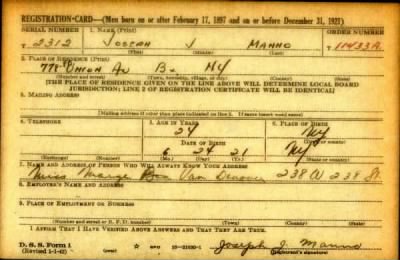 REGISTRATION CARD—(Men born on or after February 17, 1897 and on or before December 31, 1921)
SERIAL NUMBER 1. NAME (Print) ORDER NUMBER
T 2312 JOSEPH J MANNO 11433A
(First) (Middle) (Last)
2. PLACE OF RESIDENCE (Print)
778 UNION AV Bx NY
(Number and street) (Town, township, village, or city) (County) (State)
[THE PLACE OF RESIDENCE GIVEN ON THE LINE ABOVE WILL DETERMINE LOCAL BOARD
JURISDICTION; LINE 2 OF REGISTRATION CERTIFICATE WILL BE IDENTICAL]
3. MAILING ADDRESS
[Mailing address if other than place indicated on line 2. If same insert word same]
4. TELEPHONE 5. AGE IN YEARS 6. PLACE OF BIRTH
NY
DATE OF BIRTH (Town or county)
6 24 21 NY
(Exchange) (Number) (Mo.) (Day) (Yr.) (State or country)
7. NAME AND ADDRESS OF PERSON WHO WILL ALWAYS KNOW YOUR ADDRESS
Miss Van 238 W 238 St.
8. EMPLOYER'S NAME AND ADDRESS
9. PLACE OF EMPLOYMENT OR BUSINESS
(Number and street or R. F. D. number) (Town) (County) (State)
I AFFIRM THAT I HAVE VERIFIED ABOVE ANSWERS AND THAT THEY ARE TRUE.
D. S. S. Form 1
(Revised 1-1-42) GPO 16—21630-1 Joseph J. Manno
(Registrant's signature)